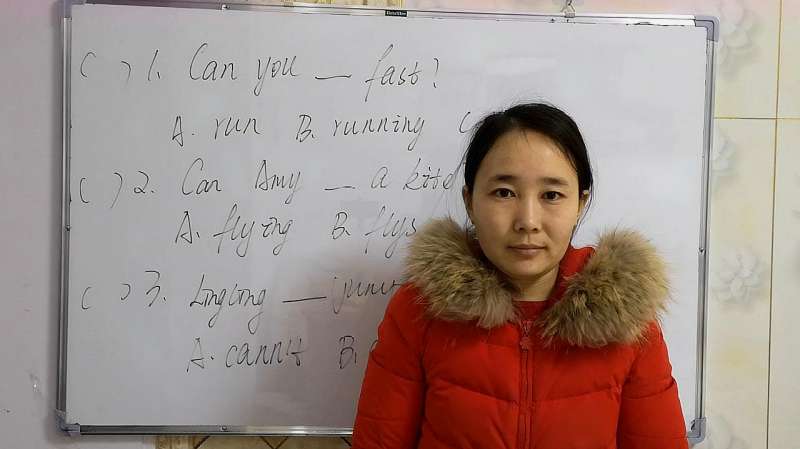 ( ) 1. Can you __ fast?
A. run B. running C
( ) 2. Can Amy __ a kite
A. flying B. flys
( ) 3. Lingling __
A. cann't B.